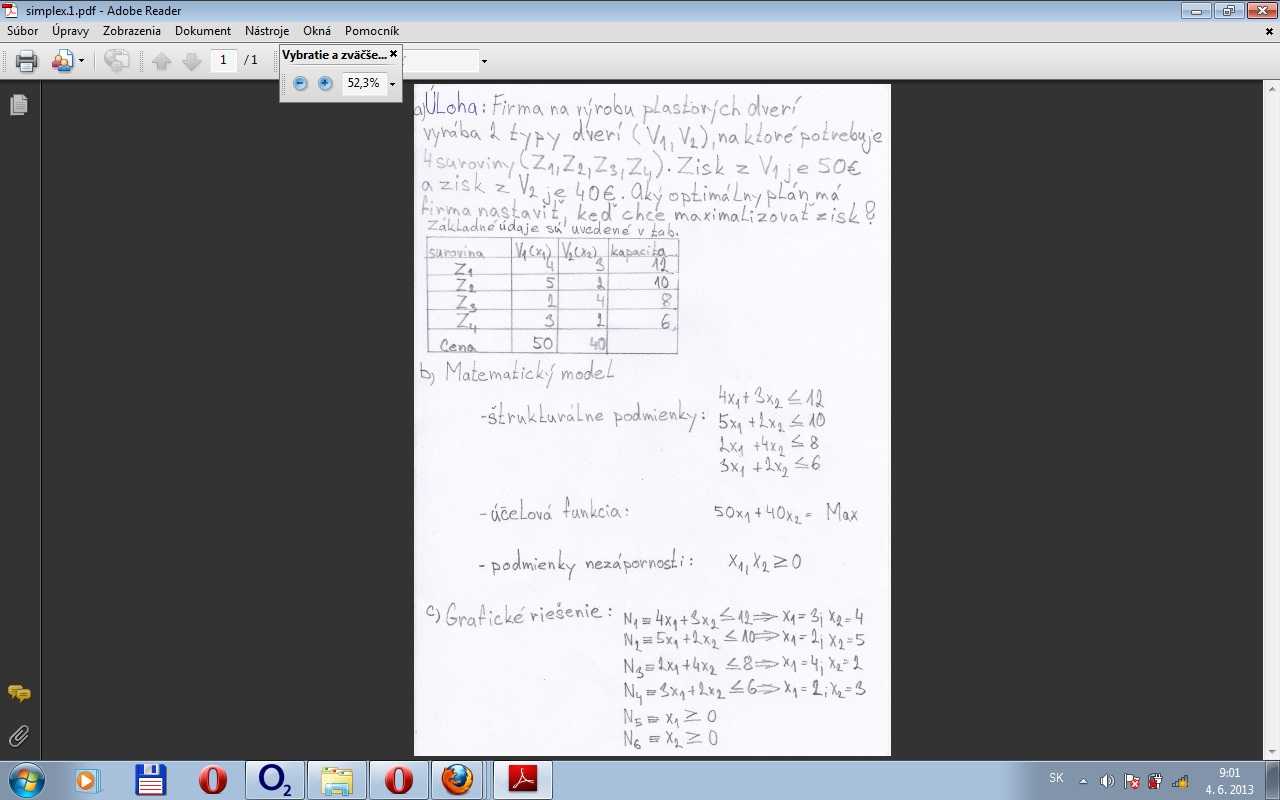 simplex.1.pdf - Adobe Reader
Súbor Úpravy Zobrazenia Dokument Nástroje Okná Pomocník
1 / 1
Vybratie a zväčše...
52,3%
a) Úloha: Firma na výrobu plastových dverí
vyrába 2 typy dverí (V1, V2), na ktoré potrebuje
4 suroviny (Z1, Z2, Z3, Z4). Zisk z V1 je 50€
a zisk z V2 je 40€. Aký optimálny plán má
firma nastaviť, keď chce maximalizovať zisk?
Základné údaje sú uvedené v tab.
surovina V1(x1) V2(x2) kapacita
Z1 4 3 12
Z2 5 2 10
Z3 2 4 8
Z4 3 2 6
Cena 50 40
b) Matematický model
-štrukturálne podmienky: 4x1+3x2 ≤ 12
5x1+2x2 ≤ 10
2x1+4x2 ≤ 8
3x1+2x2 ≤ 6
- účelová funkcia: 50x1+40x2 = Max
- podmienky nezápornosti: x1, x2 ≥ 0
c) Grafické riešenie: N1 ≡ 4x1+3x2 ≤ 12 ⇒ x1=3; x2=4
N2 ≡ 5x1+2x2 ≤ 10 ⇒ x1=2; x2=5
N3 ≡ 2x1+4x2 ≤ 8 ⇒ x1=4; x2=2
N4 ≡ 3x1+2x2 ≤ 6 ⇒ x1=2; x2=3
N5 ≡ x1 ≥ 0
N6 ≡ x2 ≥ 0
O2
SK
9:01
4. 6. 2013